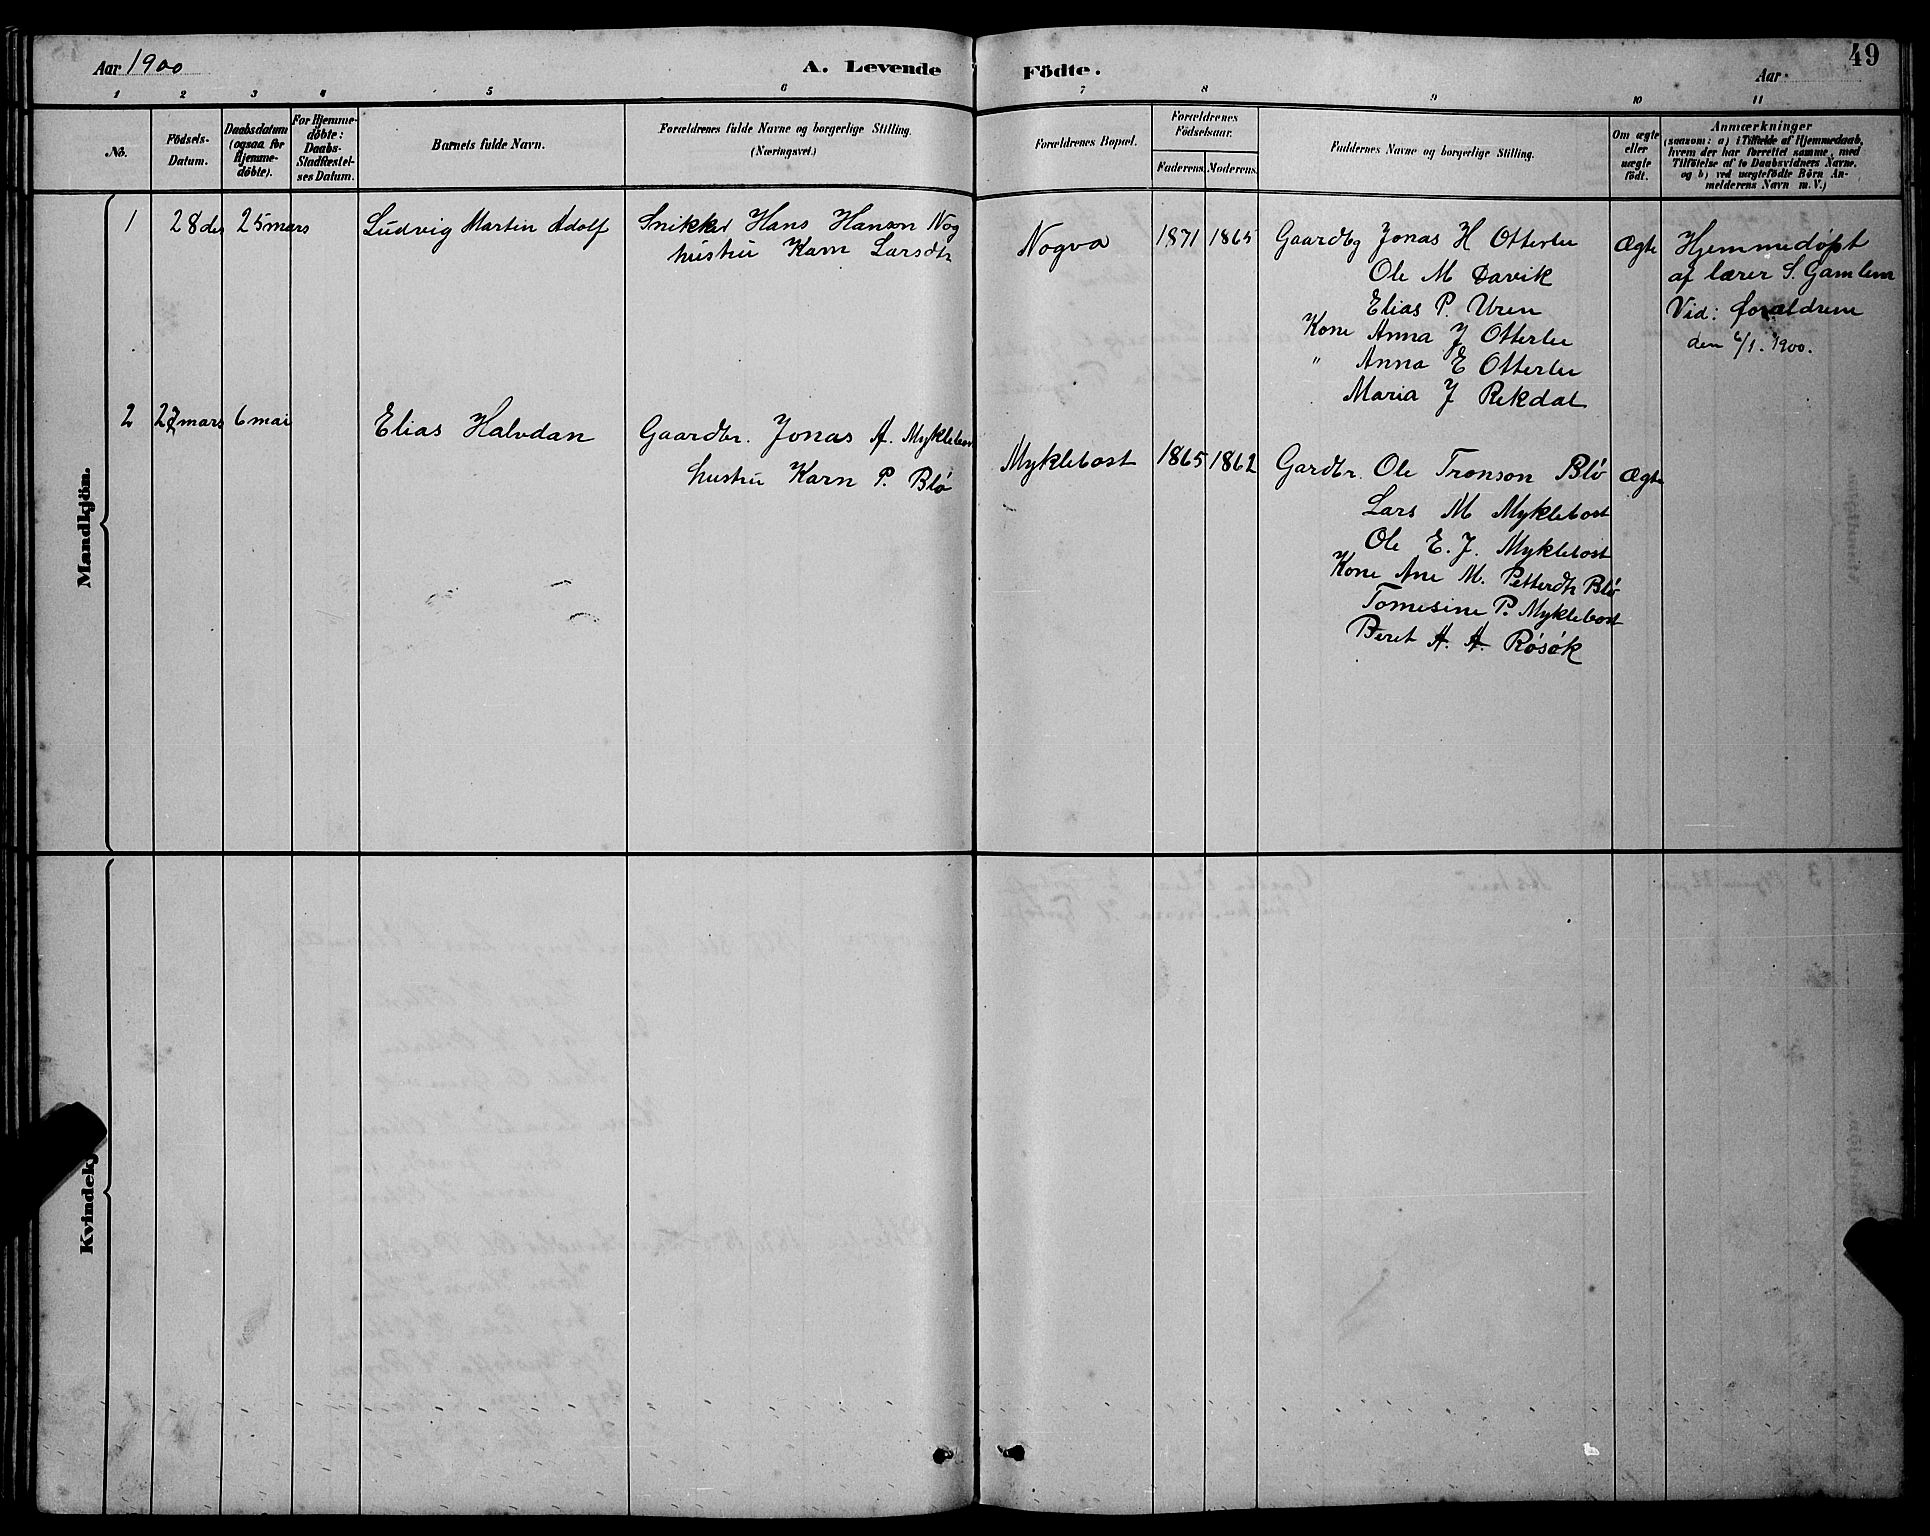 Aar 1900
A. Levende Födte.
Aar
49
1 2 3 4 5 6 7 8 9 10 11
No.
Födsels-
Datum.
Daabsdatum
(ogsaa for
Hjemme-
döbte).
For Hjemme-
döbte:
Daabs-
Stadfæstel-
ses Datum.
Barnets fulde Navn.
Forældrenes fulde Navne og borgerlige Stilling.
(Næringsvei.)
Forældrenes Bopæl.
Forældrenes
Födselsaar.
Faderens. Moderens.
Faddernes Navne og borgerlige Stilling.
Om ægte
eller
uægte
födt.
Anmærkninger
(saasom: a) i Tilfælde af Hjemmedaab,
hvem der har forrettet samme, med
Tilföielse af to Daabsvidners Navne,
og b) ved uægtefödte Börn An-
melderens Navn m. V.)
Mandkjön.
1 28 des 25 mars Ludvig Martin Adolf Snikker Hans Hanson Nog
hustru Karn Larsdtr
Nogva 1871 1865 Gaardbg Jonas H Otterlei Ægte
Ole M Davik
Elias P. Uren
Kone Anna J Otterlei
" Anna E Otterlei
Maria J Rekdal
Hjemmedøpt
af lærer S. Gamlem
Vid: forældrene
den 6/1. 1900.
2 27 mars 6 mai Elias Halvdan Gaardbr. Jonas A. Myklebost
hustru Karn P. Blø
Myklebost 1865 1862 Gardbr. Ole Tronson Blø Ægte
Lars M Myklebost
Ole E. J. Myklebost
Kone Ane M. Petterdtr Blø
Tomesine P. Myklebost
Beret A. A. Røsøk
Kvindekj